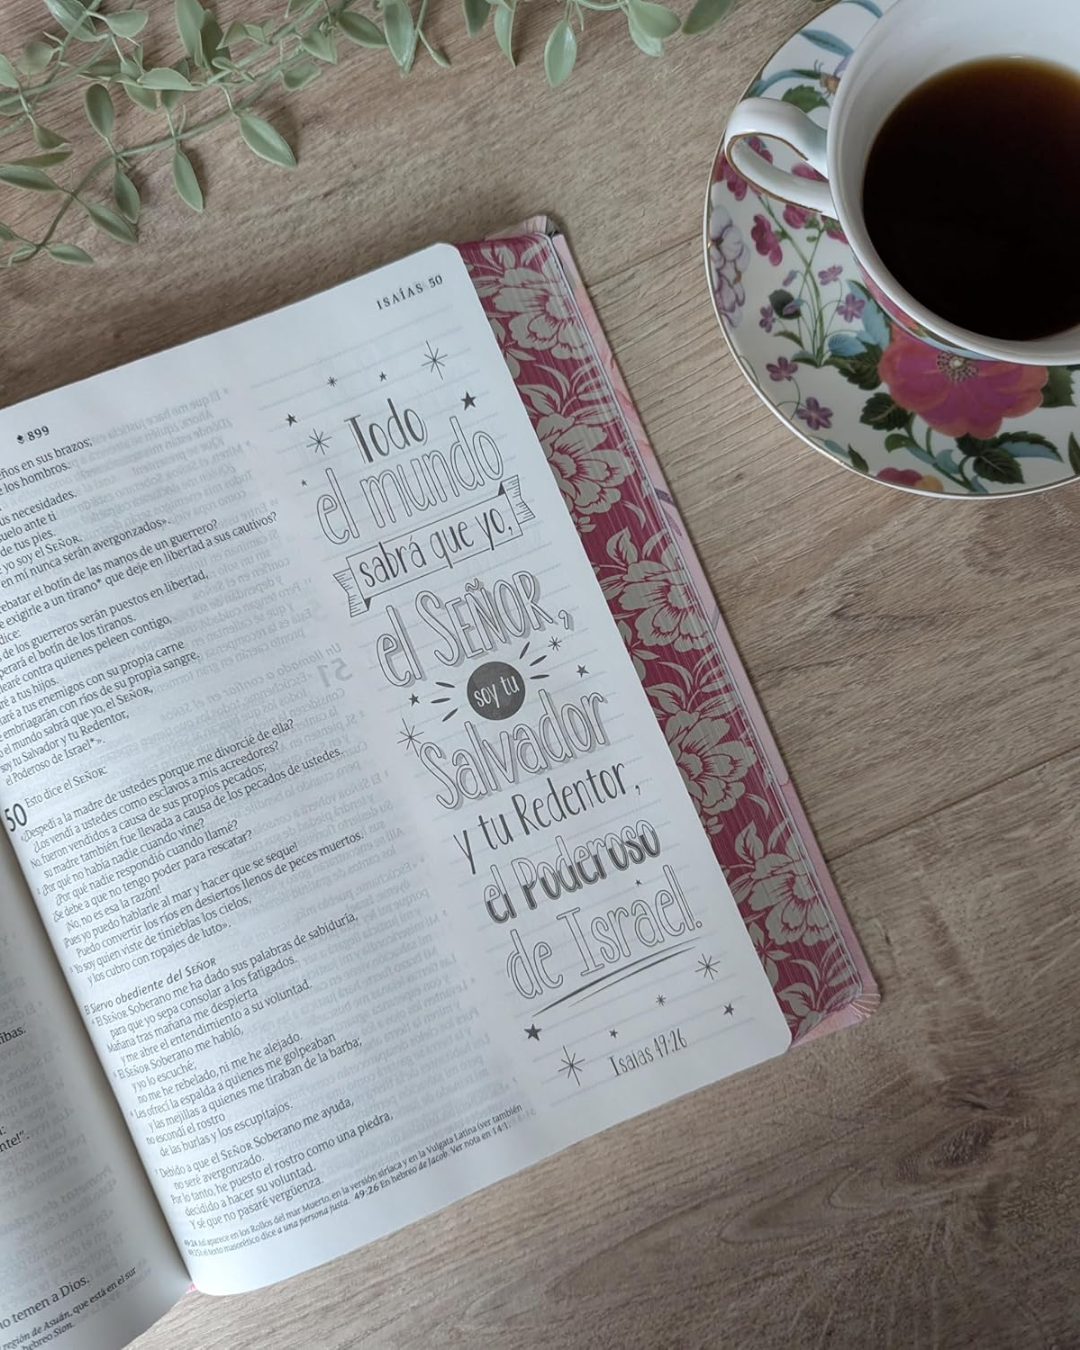 ISAÍAS 50
899
ños en sus brazos;
e los hombros.
us necesidades.
suelo ante ti
de tus pies.
yo soy el SEÑOR.
en mí nunca serán avergonzados».
rebatar el botín de las manos de un guerrero?
e exigirle a un tirano* que deje en libertad a sus cautivos?
dice:
de los guerreros serán puestos en libertad,
perará el botín de los tiranos.
learé contra quienes peleen contigo,
ré a tus hijos.
taré a tus enemigos con su propia carne
embriagarán con ríos de su propia sangre.
o el mundo sabrá que yo, el SEÑOR,
soy tu Salvador y tu Redentor,
el Poderoso de Israel*».
50 Esto dice el SEÑOR:
«¿Despedí a la madre de ustedes porque me divorcié de ella?
¿Los vendí a ustedes como esclavos a mis acreedores?
No, fueron vendidos a causa de sus propios pecados;
su madre también fue llevada a causa de los pecados de ustedes.
2 ¿Por qué no había nadie cuando vine?
¿Por qué nadie respondió cuando llamé?
¿Se debe a que no tengo poder para rescatar?
¡No, no es esa la razón!
Pues yo puedo hablarle al mar y hacer que se seque!
Puedo convertir los ríos en desiertos llenos de peces muertos.
3 Yo soy quien viste de tinieblas los cielos,
y los cubro con ropajes de luto».
El Siervo obediente del SEÑOR
4 El SEÑOR Soberano me ha dado sus palabras de sabiduría,
para que yo sepa consolar a los fatigados.
Mañana tras mañana me despierta
y me abre el entendimiento a su voluntad.
5 El SEÑOR Soberano me habló,
y yo lo escuché;
no me he rebelado, ni me he alejado.
6 Les ofrecí la espalda a quienes me golpeaban
y las mejillas a quienes me tiraban de la barba;
no escondí el rostro
de las burlas y los escupitajos.
7 Debido a que el SEÑOR Soberano me ayuda,
no seré avergonzado.
Por lo tanto, he puesto el rostro como una piedra,
decidido a hacer su voluntad.
Y sé que no pasaré vergüenza.
49:24 Así aparece en los Rollos del mar Muerto, en la versión siríaca y en la Vulgata Latina (ver también
49:25); el texto masorético dice a una persona justa. 49:26 En hebreo de Jacob. Ver nota en 14:1.
Todo
el mundo
sabrá que yo,
el SEÑOR,
soy tu
Salvador
y tu Redentor,
el Poderoso
de Israel.
Isaías 49:26
ibas.
nte!".
no temen a Dios.
región de Asuán, que está en el sur
hebreo Sion.